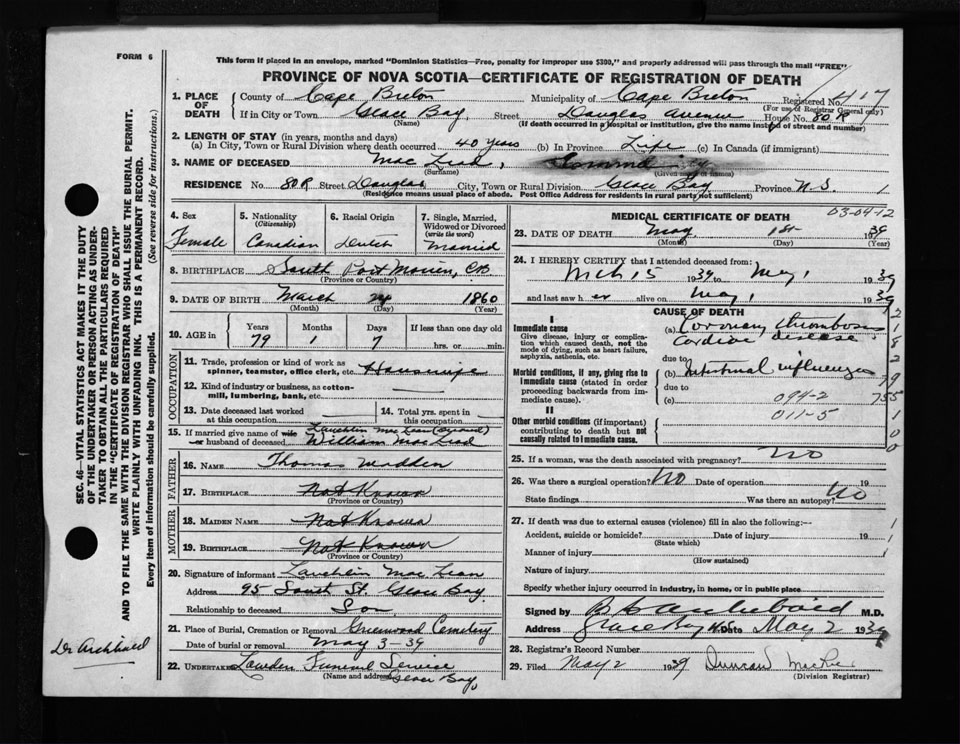 FORM 6
This form if placed in an envelope, marked "Dominion Statistics—Free, penalty for improper use $300," and properly addressed will pass through the mail "FREE"
PROVINCE OF NOVA SCOTIA—CERTIFICATE OF REGISTRATION OF DEATH
1. PLACE OF DEATH
County of Cape Breton Municipality of Cape Breton Registered No. 417
(For use of Registrar General only)
If in City or Town Glace Bay Street Douglas Avenue House No. 80 R
(Name) (If death occurred in a hospital or institution, give the name instead of street and number)
2. LENGTH OF STAY (in years, months and days)
(a) In City, Town or Rural Division where death occurred 40 years (b) In Province Life (c) In Canada (if immigrant)
3. NAME OF DECEASED Mac Lean,
(Surname) (Given name or names)
RESIDENCE No. 80R Street Douglas City, Town or Rural Division Glace Bay Province N.S. 1
(Residence means usual place of abode. Post Office Address for residents in rural parts not sufficient)
4. Sex
Female
5. Nationality
(Citizenship)
Canadian
6. Racial Origin
Dutch
7. Single, Married, Widowed or Divorced
(write the word)
Married
8. BIRTHPLACE South Port Morien, C.B.
(Province or Country)
9. DATE OF BIRTH March 24 1860
(Month) (Day) (Year)
10. AGE in
Years Months Days If less than one day old
79 1 7 hrs. or min.
OCCUPATION
11. Trade, profession or kind of work as spinner, teamster, office clerk, etc. Housewife
12. Kind of industry or business, as cotton-mill, lumbering, bank, etc.
13. Date deceased last worked at this occupation
14. Total yrs. spent in this occupation
15. If married give name of wife or husband of deceased
William Mac Lead
FATHER
16. NAME Thomas Madden
17. BIRTHPLACE Not Known
(Province or Country)
MOTHER
18. MAIDEN NAME Not Known
19. BIRTHPLACE Not Known
(Province or Country)
20. Signature of informant Lauchlin Mac Lean
Address 95 South St. Glace Bay
Relationship to deceased Son
21. Place of Burial, Cremation or Removal Greenwood Cemetery
Date of burial or removal May 3 - 39
22. UNDERTAKER Funeral Service
(Name and address) Glace Bay
MEDICAL CERTIFICATE OF DEATH
03-04-12
23. DATE OF DEATH May 1st 1939
(Month) (Day) (Year)
24. I HEREBY CERTIFY that I attended deceased from:
Mch 15 1939 to May 1 1939
and last saw her alive on May 1 1939
CAUSE OF DEATH
I
Immediate cause
Give disease, injury or complication which caused death, not the mode of dying, such as heart failure, asphyxia, asthenia, etc.
(a) Coronary thrombosis
Cardiac disease
due to
Morbid conditions, if any, giving rise to immediate cause (stated in order proceeding backwards from immediate cause).
(b) Intestinal influenza
due to
(c) 094-2
II
Other morbid conditions (if important) contributing to death but not causally related to immediate cause.
011-5
25. If a woman, was the death associated with pregnancy? No
26. Was there a surgical operation? No Date of operation 19
State findings Was there an autopsy? No
27. If death was due to external causes (violence) fill in also the following:—
Accident, suicide or homicide? Date of injury 19
(State which)
Manner of injury
(How sustained)
Nature of injury
Specify whether injury occurred in industry, in home, or in public place
Signed by Archibald M.D.
Address Glace Bay N.S. Date May 2 1939
28. Registrar's Record Number
29. Filed May 2 1939 Duncan
(Division Registrar)
SEC. 46—VITAL STATISTICS ACT MAKES IT THE DUTY
OF THE UNDERTAKER OR PERSON ACTING AS UNDER-
TAKER TO OBTAIN ALL THE PARTICULARS REQUIRED
IN THE "CERTIFICATE OF REGISTRATION OF DEATH"
AND TO FILE THE SAME WITH THE DIVISION REGISTRAR WHO SHALL ISSUE THE BURIAL PERMIT.
WRITE PLAINLY WITH UNFADING INK. THIS IS A PERMANENT RECORD.
Every item of information should be carefully supplied. (See reverse side for instructions.)
Dr Archibald